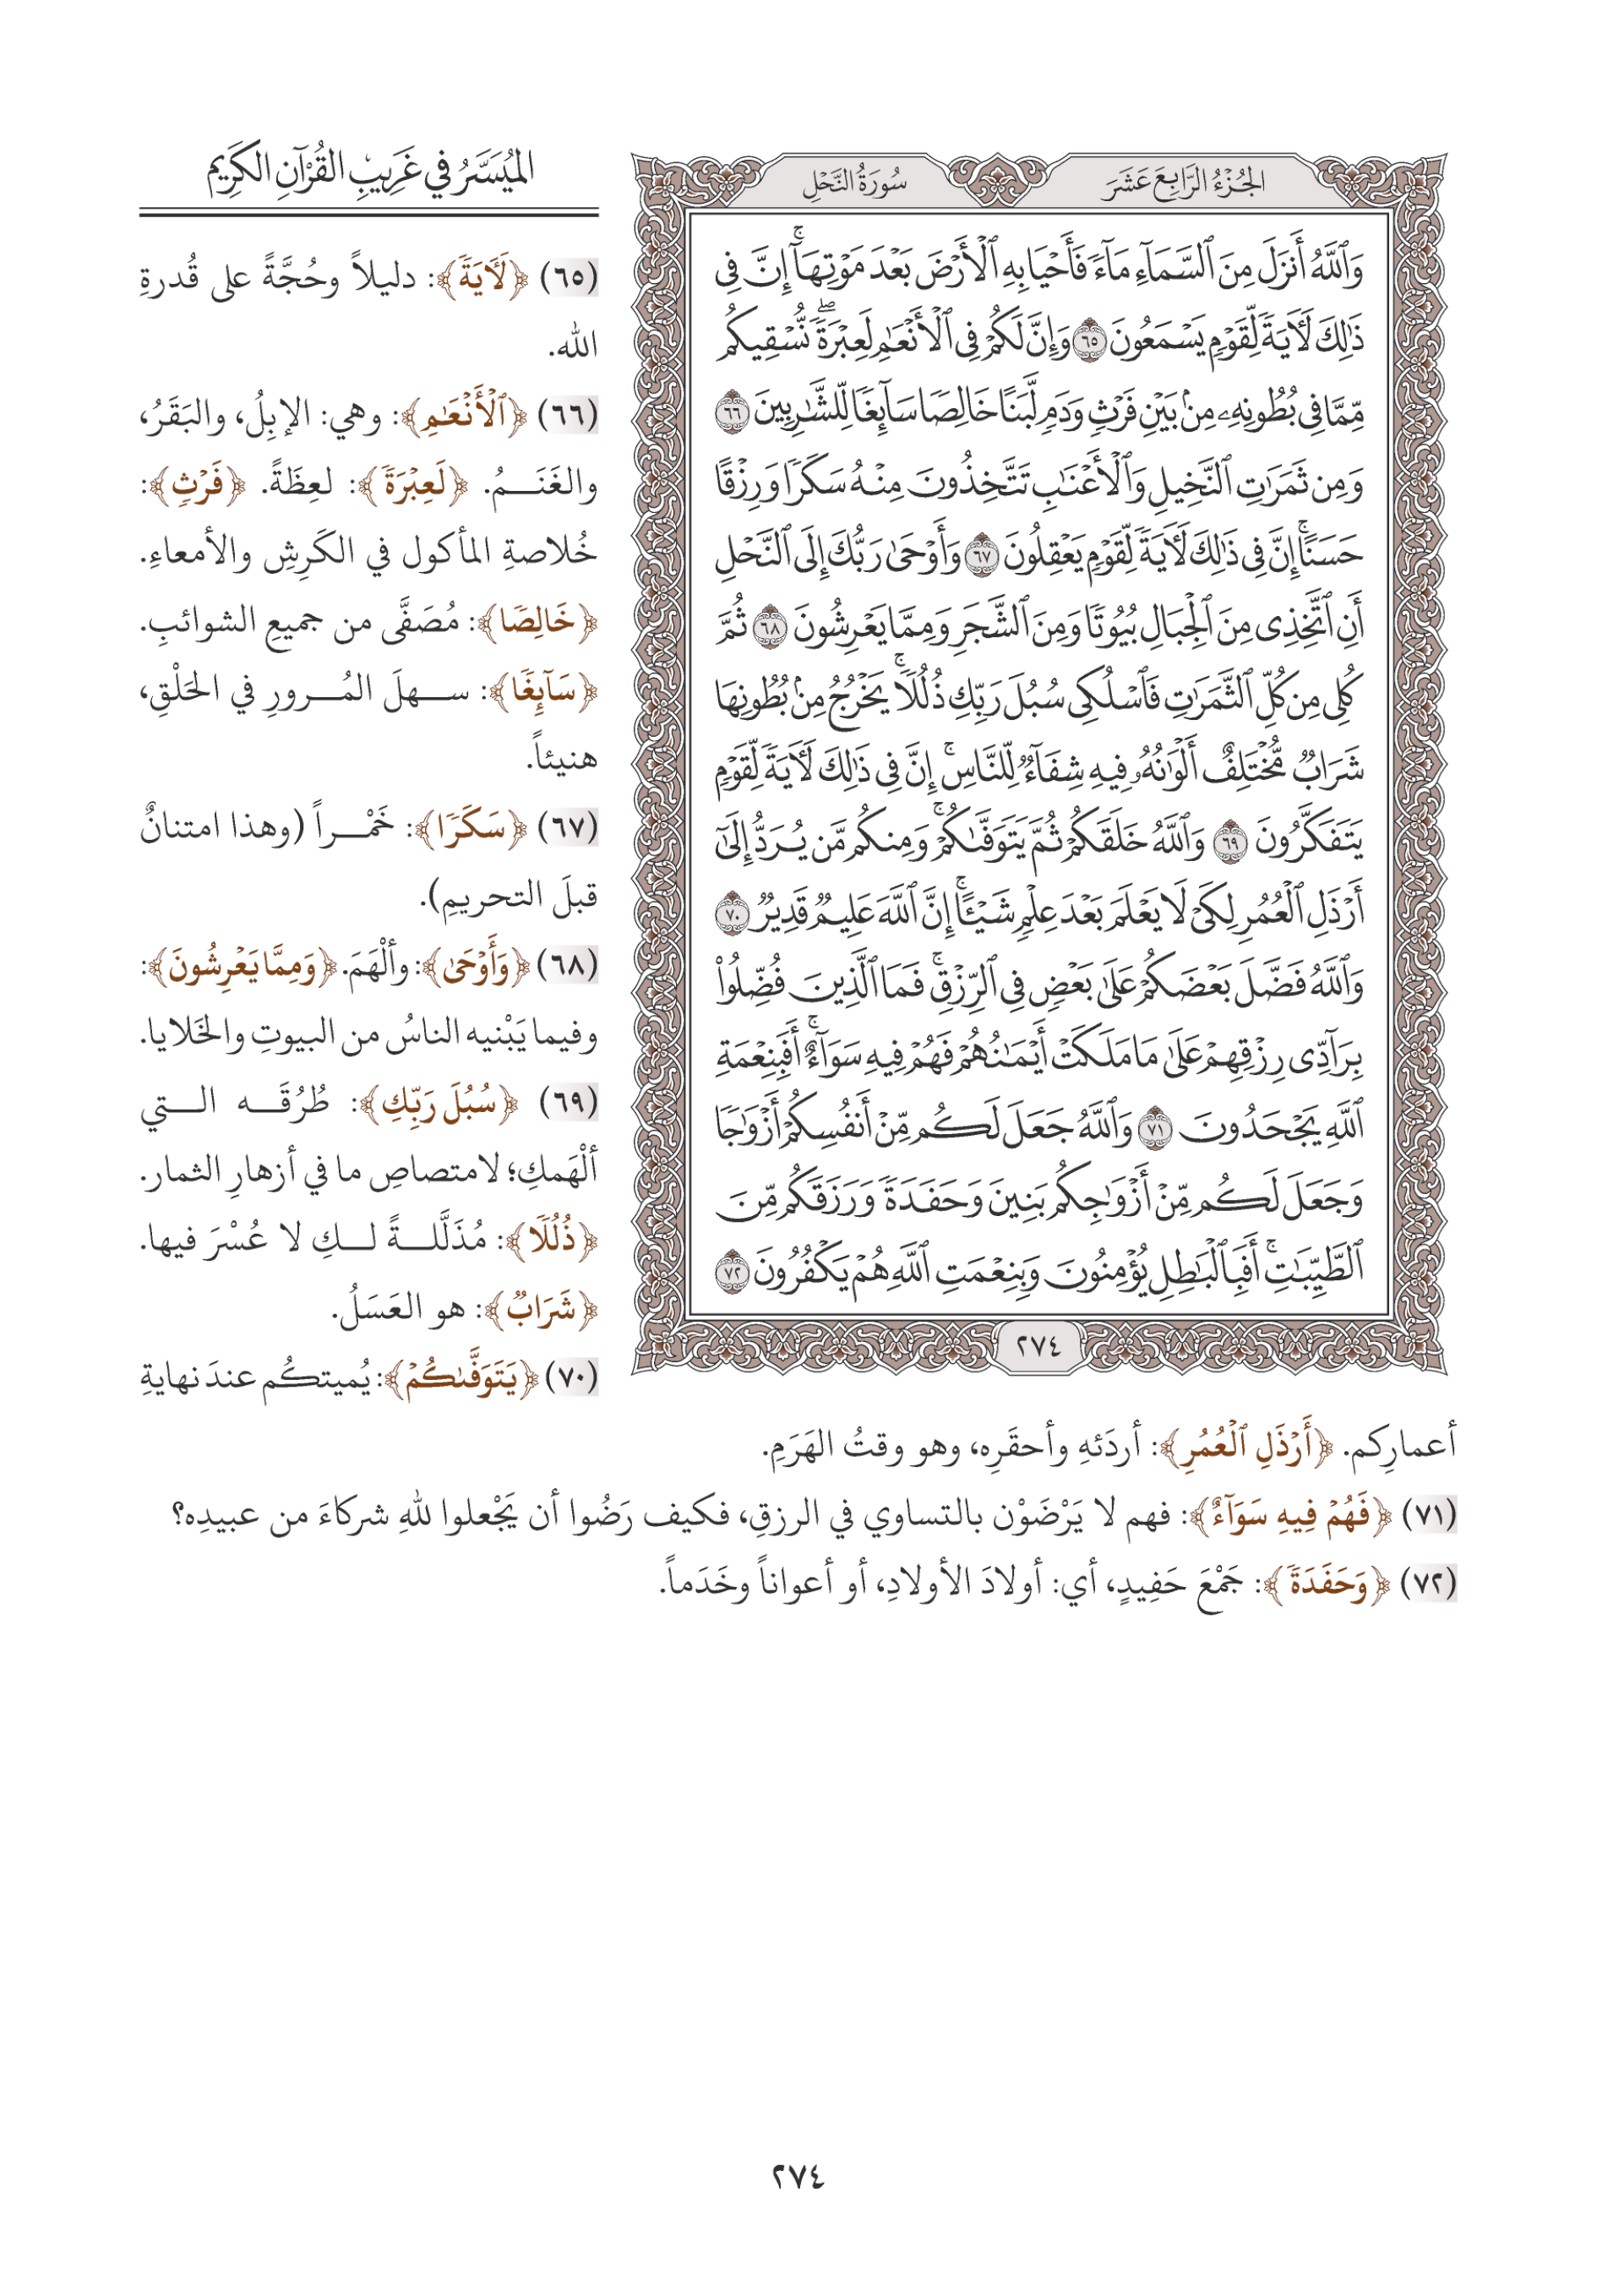 الجُزْءُ الرَّابِعَ عَشَرَ
سُورَةُ النَّحْلِ
وَٱللَّهُ أَنزَلَ مِنَ ٱلسَّمَآءِ مَآءً فَأَحْيَا بِهِ ٱلْأَرْضَ بَعْدَ مَوْتِهَآۚ إِنَّ فِى
ذَٰلِكَ لَـَٔايَةً لِّقَوْمٍ يَسْمَعُونَ ٦٥ وَإِنَّ لَكُمْ فِى ٱلْأَنْعَٰمِ لَعِبْرَةًۖ نُّسْقِيكُم
مِّمَّا فِى بُطُونِهِۦ مِنۢ بَيْنِ فَرْثٍ وَدَمٍ لَّبَنًا خَالِصًا سَآئِغًا لِّلشَّٰرِبِينَ ٦٦
وَمِن ثَمَرَٰتِ ٱلنَّخِيلِ وَٱلْأَعْنَٰبِ تَتَّخِذُونَ مِنْهُ سَكَرًا وَرِزْقًا
حَسَنًاۚ إِنَّ فِى ذَٰلِكَ لَـَٔايَةً لِّقَوْمٍ يَعْقِلُونَ ٦٧ وَأَوْحَىٰ رَبُّكَ إِلَى ٱلنَّحْلِ
أَنِ ٱتَّخِذِى مِنَ ٱلْجِبَالِ بُيُوتًا وَمِنَ ٱلشَّجَرِ وَمِمَّا يَعْرِشُونَ ٦٨ ثُمَّ
كُلِى مِن كُلِّ ٱلثَّمَرَٰتِ فَٱسْلُكِى سُبُلَ رَبِّكِ ذُلُلًاۚ يَخْرُجُ مِنۢ بُطُونِهَا
شَرَابٌ مُّخْتَلِفٌ أَلْوَٰنُهُۥ فِيهِ شِفَآءٌ لِّلنَّاسِۚ إِنَّ فِى ذَٰلِكَ لَـَٔايَةً لِّقَوْمٍ
يَتَفَكَّرُونَ ٦٩ وَٱللَّهُ خَلَقَكُمْ ثُمَّ يَتَوَفَّىٰكُمْۚ وَمِنكُم مَّن يُرَدُّ إِلَىٰٓ
أَرْذَلِ ٱلْعُمُرِ لِكَىْ لَا يَعْلَمَ بَعْدَ عِلْمٍ شَيْـًٔاۚ إِنَّ ٱللَّهَ عَلِيمٌ قَدِيرٌ ٧٠
وَٱللَّهُ فَضَّلَ بَعْضَكُمْ عَلَىٰ بَعْضٍ فِى ٱلرِّزْقِۚ فَمَا ٱلَّذِينَ فُضِّلُوا۟
بِرَآدِّى رِزْقِهِمْ عَلَىٰ مَا مَلَكَتْ أَيْمَٰنُهُمْ فَهُمْ فِيهِ سَوَآءٌۚ أَفَبِنِعْمَةِ
ٱللَّهِ يَجْحَدُونَ ٧١ وَٱللَّهُ جَعَلَ لَكُم مِّنْ أَنفُسِكُمْ أَزْوَٰجًا
وَجَعَلَ لَكُم مِّنْ أَزْوَٰجِكُم بَنِينَ وَحَفَدَةً وَرَزَقَكُم مِّنَ
ٱلطَّيِّبَٰتِۚ أَفَبِٱلْبَٰطِلِ يُؤْمِنُونَ وَبِنِعْمَتِ ٱللَّهِ هُمْ يَكْفُرُونَ ٧٢
٢٧٤
المُيَسَّرُ في غَرِيبِ القُرْآنِ الكَرِيمِ
(٦٥) ﴿لَـَٔايَةً﴾: دليلاً وحُجَّةً على قُدرةِ
الله.
(٦٦) ﴿ٱلْأَنْعَٰمِ﴾: وهي: الإبِلُ، والبَقَرُ،
والغَنَمُ. ﴿لَعِبْرَةً﴾: لعِظَةً. ﴿فَرْثٍ﴾:
خُلاصةِ المأكول في الكَرِشِ والأمعاءِ.
﴿خَالِصًا﴾: مُصَفَّى من جميعِ الشوائبِ.
﴿سَآئِغًا﴾: سهلَ المُرورِ في الحَلْقِ،
هنيئاً.
(٦٧) ﴿سَكَرًا﴾: خَمْراً (وهذا امتنانٌ
قبلَ التحريمِ).
(٦٨) ﴿وَأَوْحَىٰ﴾: وألْهَمَ. ﴿وَمِمَّا يَعْرِشُونَ﴾:
وفيما يَبْنيه الناسُ من البيوتِ والخَلايا.
(٦٩) ﴿سُبُلَ رَبِّكِ﴾: طُرُقَه التي
ألْهَمكِ؛ لامتصاصِ ما في أزهارِ الثمار.
﴿ذُلُلًا﴾: مُذَلَّلةً لكِ لا عُسْرَ فيها.
﴿شَرَابٌ﴾: هو العَسَلُ.
(٧٠) ﴿يَتَوَفَّىٰكُمْ﴾: يُميتكُم عندَ نهايةِ
أعمارِكم. ﴿أَرْذَلِ ٱلْعُمُرِ﴾: أردَئهِ وأحقَرِه، وهو وقتُ الهَرَمِ.
(٧١) ﴿فَهُمْ فِيهِ سَوَآءٌ﴾: فهم لا يَرْضَوْن بالتساوي في الرزقِ، فكيف رَضُوا أن يَجْعلوا للهِ شركاءَ من عبيدِه؟
(٧٢) ﴿وَحَفَدَةً﴾: جَمْعَ حَفِيدٍ، أي: أولادَ الأولادِ، أو أعواناً وخَدَماً.
٢٧٤